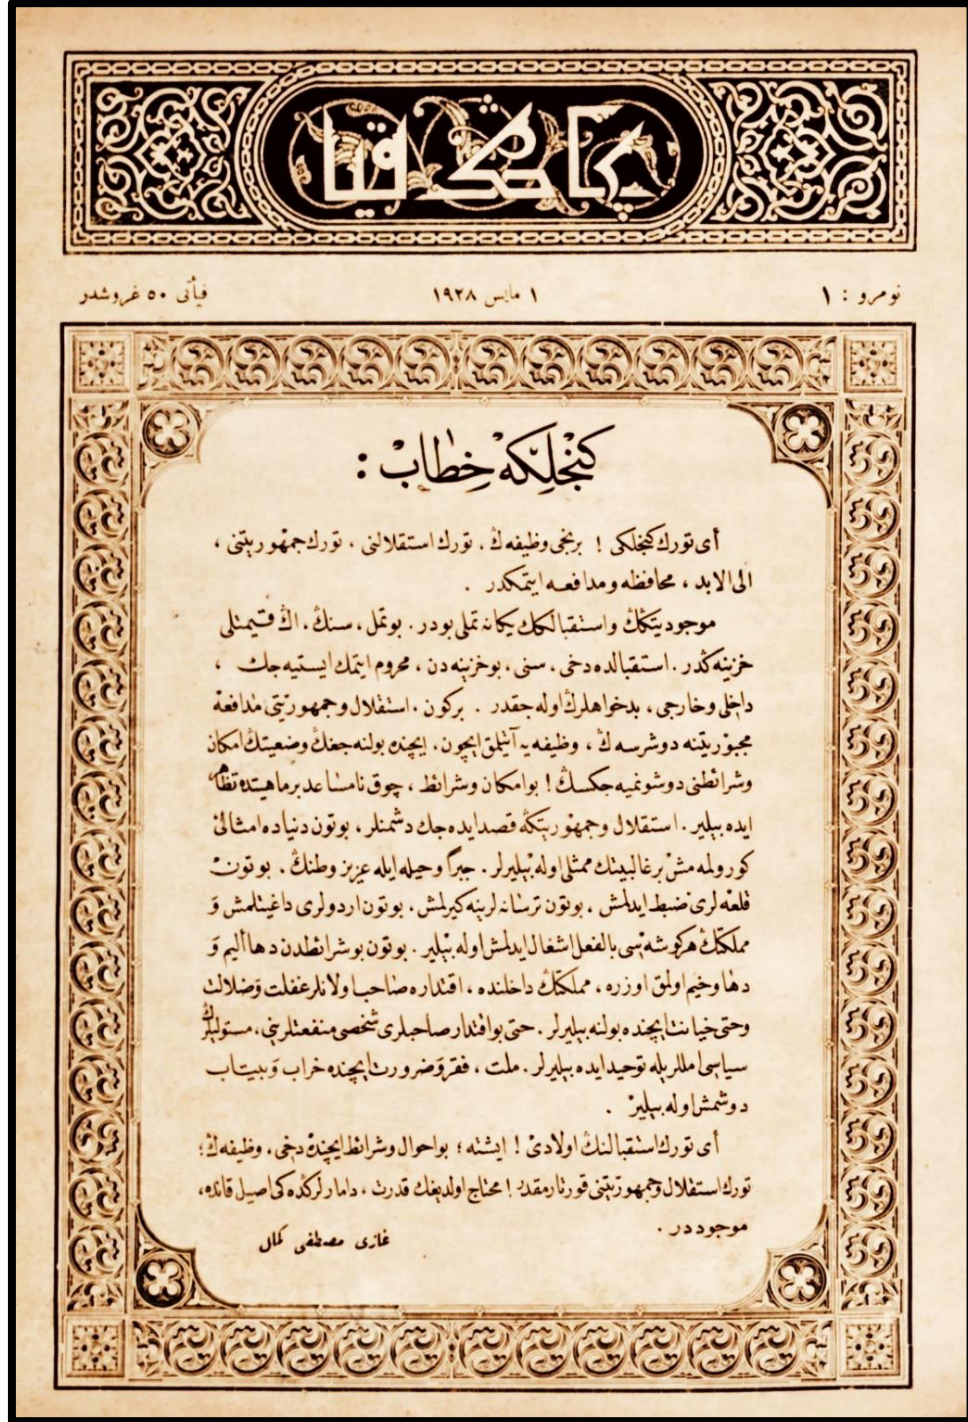 نومرو : ١
١ مايس ١٩٢٨
فيأتى ٥٠ غروشدر
كنجلكه خطاب :
أى تورك كنجلكى ! برنجى وظيفه ڭ ، تورك استقلالنى ، تورك جمهوريتنى ،
الى الابد ، محافظه ومدافعه ايتمكدر .
موجوديتكڭ واستقبالكڭ يكانه تملى بودر . بوتمل ، سنڭ ، اڭ قيمتلى
خزينه ڭدر . استقبالده دخى ، سنى ، بوخزينه دن ، محروم ايتمك ايستيه جك ،
داخلى وخارجى ، بدخواهلرڭ اوله جقدر . بركون ، استقلال وجمهوريتى مدافعه
مجبوريتنه دوشرسه ڭ ، وظيفه يه آتيلمق ايچون ، ايچنده بولنه جغڭ وضعيتڭ امكان
وشرائطنى دوشونميه جكسڭ ! بوامكان وشرائط ، چوق نامساعد برماهيتده تظاهر
ايده بيلير . استقلال وجمهوريتڭه قصد ايده جك دشمنلر ، بوتون دنياده امثالى
كورولمه مش برغالبيتك ممثلى اوله بيليرلر . جبراً وحيله ايله عزيز وطنڭ ، بوتون
قلعه لرى ضبط ايدلمش ، بوتون ترسانه لرينه كيرلمش ، بوتون اردولرى داغيتلمش وَ
مملكتڭ هركوشه سى بالفعل اشغال ايدلمش اوله بيلير . بوتون بوشرائطدن دها أليم وَ
دها وخيم اولمق اوزره ، مملكتڭ داخلنده ، اقتداره صاحب اولانلر غفلت وَضلالت
وحتى خيانت ايچنده بولنه بيليرلر . حتى بو اقتدار صاحبلرى شخصى منفعتلرينى ، مستوليلرڭ
سياسى امللريله توحيد ايده بيليرلر . ملت ، فقر وَضرورت ايچنده خراب وَبيتاب
دوشمش اوله بيلير .
أى تورك استقبالنڭ اولادى ! ايشته ؛ بواحوال وشرائط ايچنده دخى ، وظيفه ڭ ؛
تورك استقلال وجمهوريتنى قورتارمقدر ! محتاج اولديغڭ قدرت ، دامارلرڭده كى اصيل قانده ،
موجوددر .
غازى مصطفى كمال